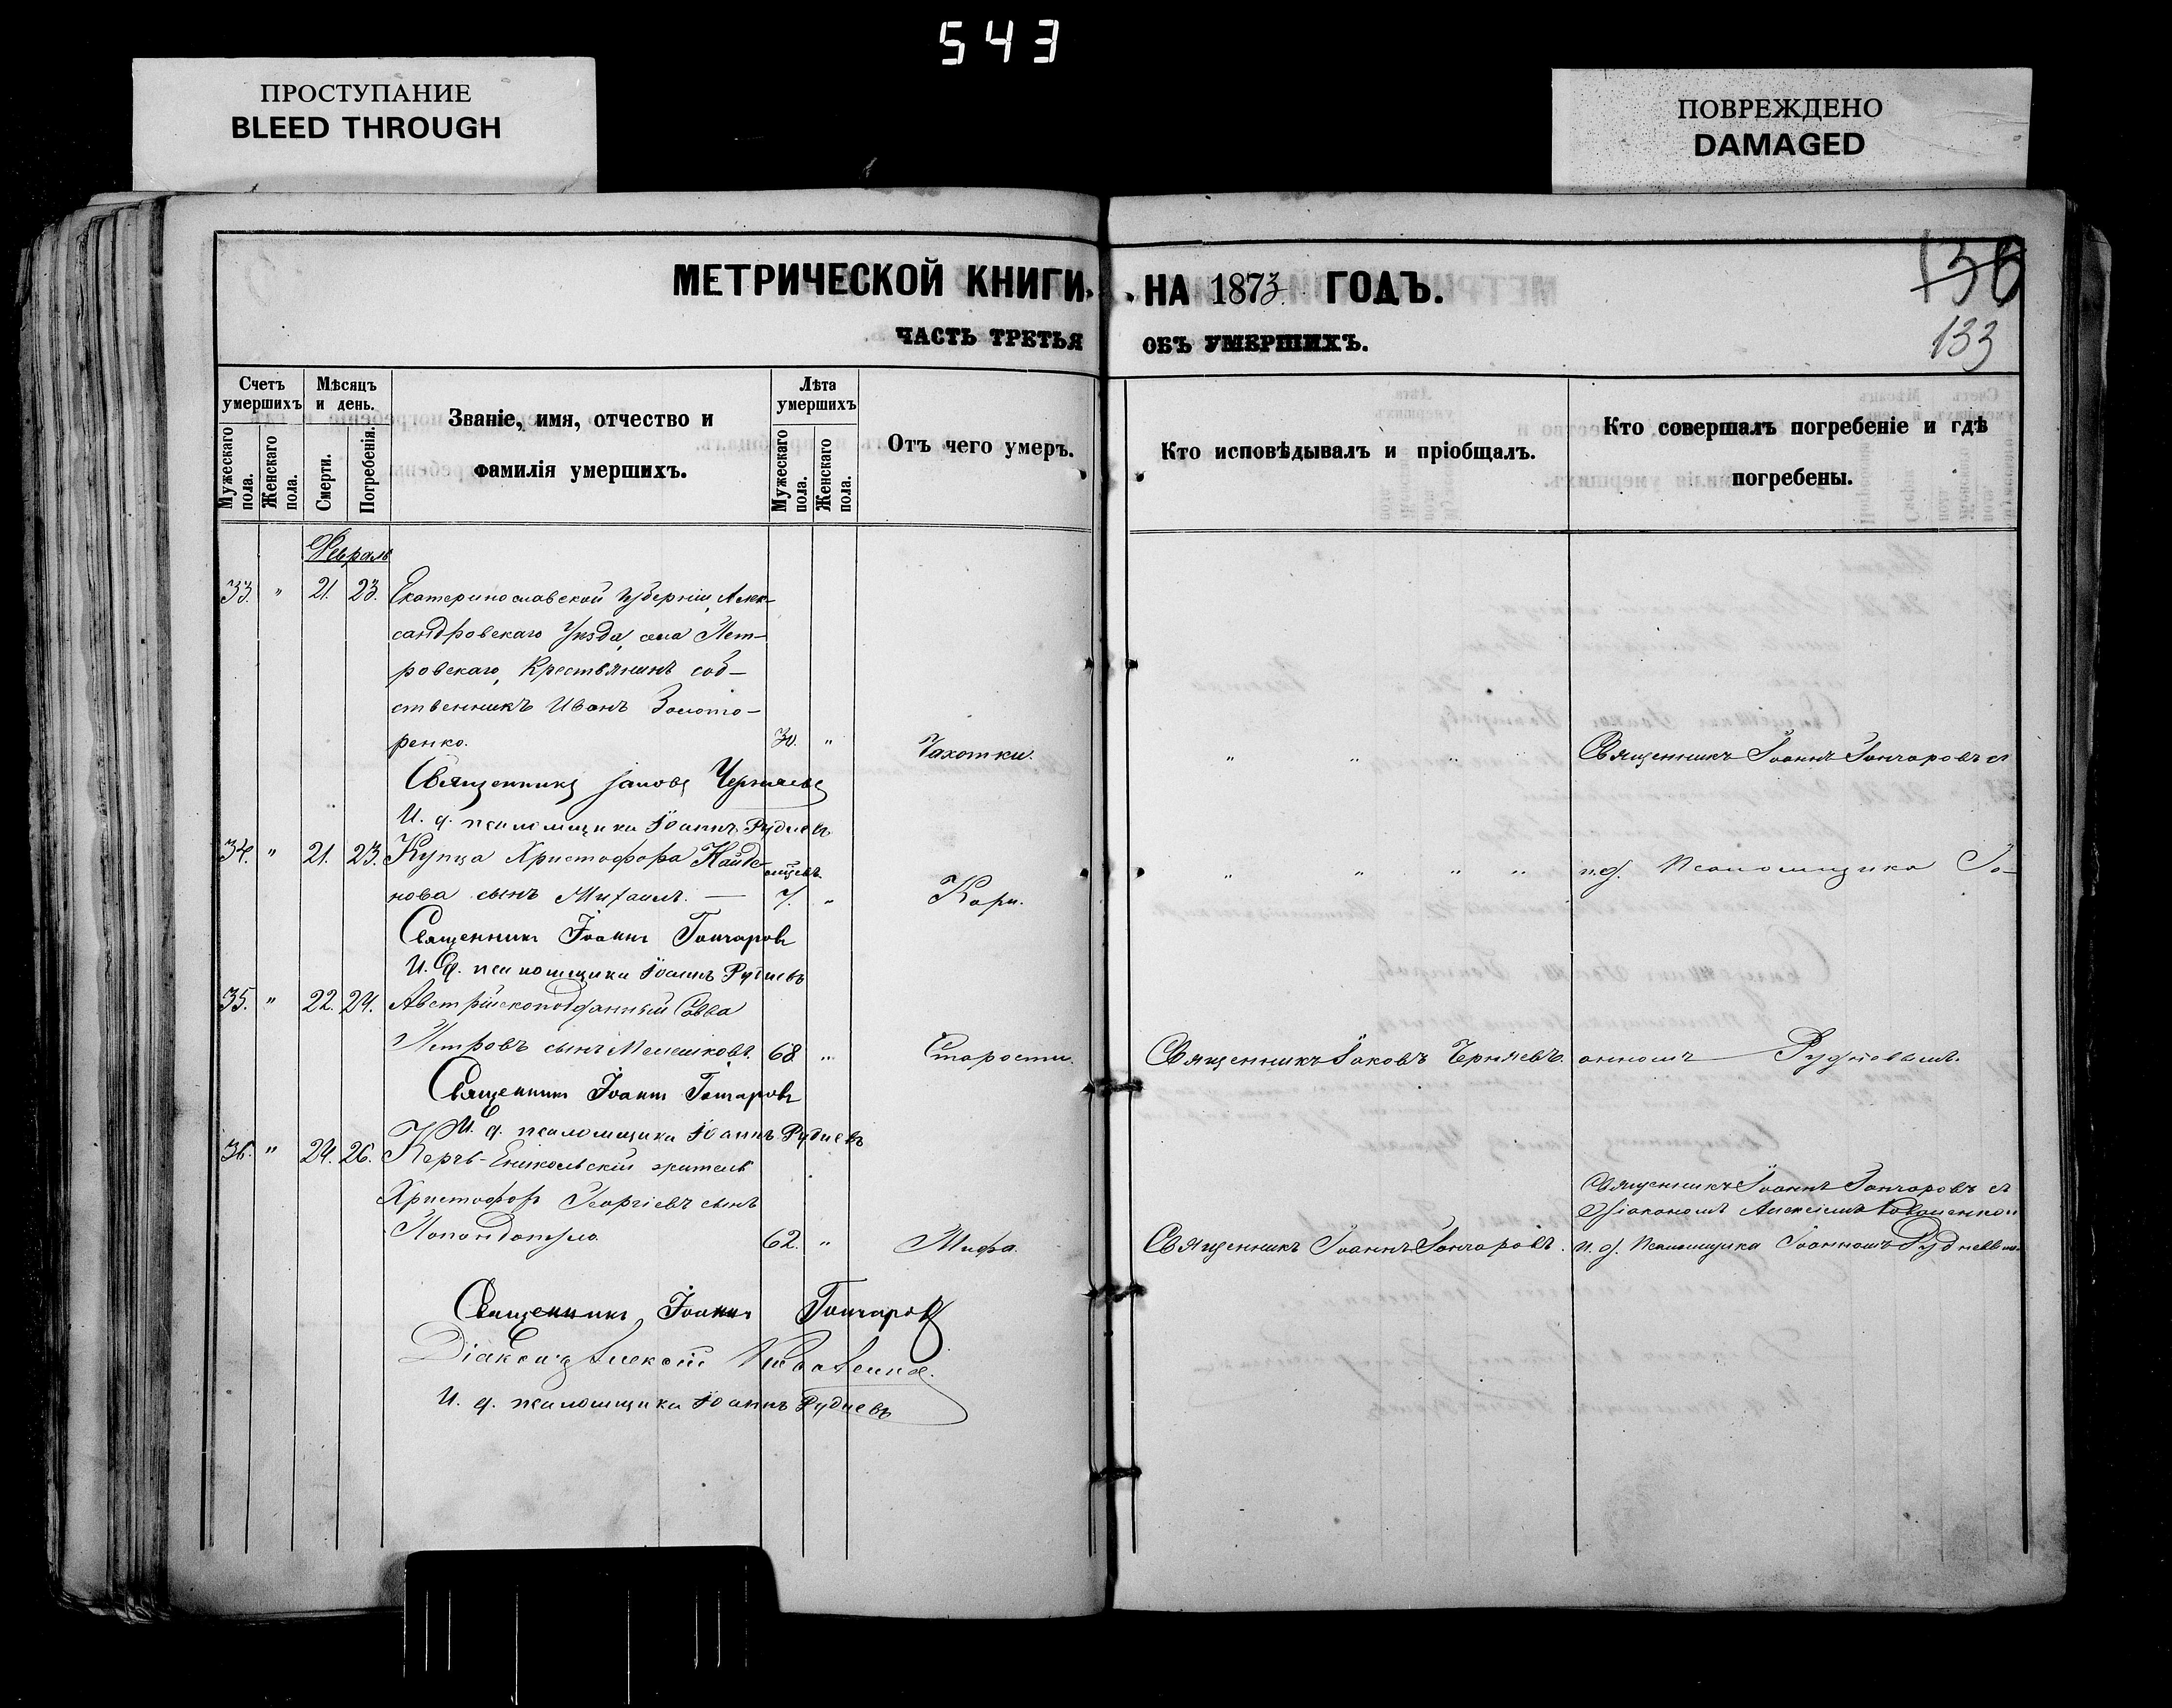 543
ПРОСТУПАНИЕ
BLEED THROUGH
ПОВРЕЖДЕНО
DAMAGED
МЕТРИЧЕСКОЙ КНИГИ НА 1873 ГОДЪ.
ЧАСТЬ ТРЕТЬЯ ОБЪ УМЕРШИХЪ.
136
133
Счетъ умершихъ
Мужескаго пола.
Женскаго пола.
Мѣсяцъ и день.
Смерти.
Погребенія.
Званіе, имя, отчество и
фамилія умершихъ.
Лѣта умершихъ
Мужескаго пола.
Женскаго пола.
Отъ чего умеръ.
Кто исповѣдывалъ и пріобщалъ.
Кто совершалъ погребеніе и гдѣ
погребены.
Февраль
33. " 21. 23. Екатеринославской Губерніи, Алек-
сандровскаго Уѣзда, села Пет-
ровскаго, Крестьянинъ соб-
ственникъ Иванъ Золото-
ренко. 30. " Чахотки. " " " " Священникъ Іоаннъ Гончаровъ съ
Священникъ Іаковъ Черняевъ
И. д. псаломщика Іоаннъ Рудневъ
34. " 21. 23. Купца Христофора Найде-
нова сынъ Михаилъ. — 7. " Кори. " " " " и.д. Псаломщика Іо-
Священникъ Іоаннъ Гончаровъ
И. д. псаломщика Іоаннъ Рудневъ
35. " 22. 24. Австрійскоподданный Савва
Петровъ сынъ Мелешковъ. 68 " Старости. Священникъ Іаковъ Черняевъ. анномъ Рудневымъ.
Священникъ Іоаннъ Гончаровъ
И. д. псаломщика Іоаннъ Рудневъ
36. " 24. 26. Керчь-Еникольскій житель
Христофоръ Георгіевъ сынъ
62. " Тифа. Священникъ Іоаннъ Гончаровъ.
Священникъ Іоаннъ Гончаровъ съ
Діакономъ Алексіемъ
и. д. Псаломщика Іоанномъ Рудневымъ
Священникъ Іоаннъ Гончаровъ
Діаконъ Алексій
И. д. псаломщика Іоаннъ Рудневъ